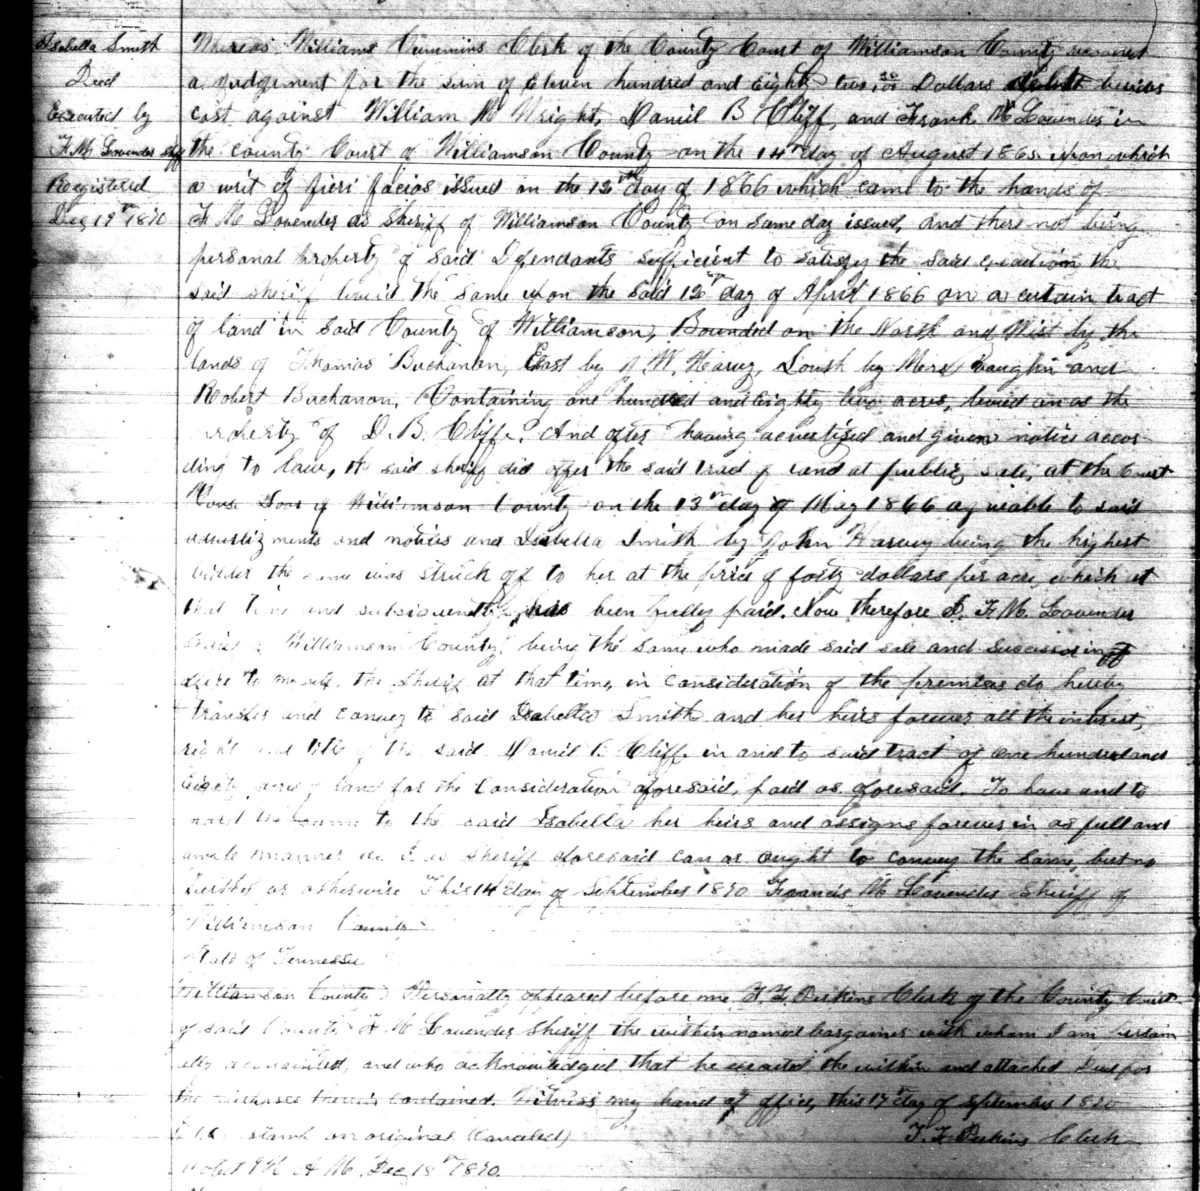 Isabella Smith
Deed
Executed by
F. M. Lavender Shff
Registered
Dec 19th 1870
Whereas Williams Cummins Clerk of the County Court of Williamson County recovered
a judgement for the sum of Eleven hundred and Eighty two Dollars besides
cost against William W Wright, Daniel B Cliff, and Frank M Lavender in
the county Court of Williamson County on the 14th day of August 1865 upon which
a writ of fieri facias issued on the 12th day of 1866 which came to the hands of
F M Lavender as Sheriff of Williamson County on same day issued, and there not being
personal property of said Defendants sufficient to satisfy the said execution the
said sheriff levied the same upon the said 12th day of April 1866 on a certain tract
of land in said County of Williamson, Bounded on the North and West by the
lands of Thomas Buchanan, East by W. Harvey, South by Mers Vaughn and
Robert Buchanan, Containing one hundred and eighty acres, levied on as the
property of D. B. Cliffe. And after having advertised and given notice accor
ding to law, the said sheriff did offer the said tract of land at public sale, at the Court
House door of Williamson County on the 13th day of May 1866 agreeable to said
advertizments and notices and Isabella Smith by John Harvey being the highest
bidder the same was struck off to her at the price of forty dollars per acre, which at
that time and subsequently has been fully paid. Now therefore I, F. M. Lavender
Sheriff of Williamson County, being the same who made said sale and successor in off
ice to myself, the Sheriff at that time, in consideration of the premises do hereby
transfer and convey to said Isabella Smith and her heirs forever all the interest,
right and title of the said Daniel B. Cliffe in and to said tract of one hundred and
eighty acres of land for the consideration aforesaid, paid as aforesaid. To have and to
hold the same to the said Isabella her heirs and assigns forever in as full and
ample manner as I as Sheriff aforesaid can or ought to convey the same, but no
further or otherwise This 14th day of September 1870 Francis M Lavender Sheriff of
Williamson County
State of Tennessee
Williamson County) Personally appeared before me Perkins Clerk of the County Court
of said County F M Lavender Sheriff the within named bargainer with whom I am person
ally acquainted, and who acknowledged that he executed the within and attached Deed for
the purposes therein contained. Witness my hand at office, this 17th day of September 1870
stamp on original (Canceled) Perkins Clerk
A M. Dec 18th 1870.